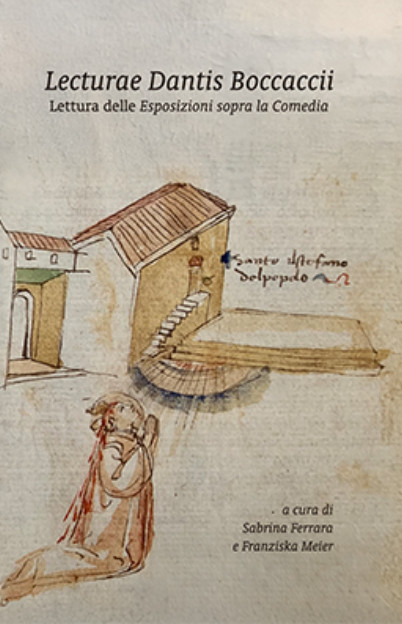 Lecturae Dantis Boccaccii
Lettura delle Esposizioni sopra la Comedia
Santo Istefano
dolpopolo
. a cura di
Sabrina Ferrara
e Franziska Meier